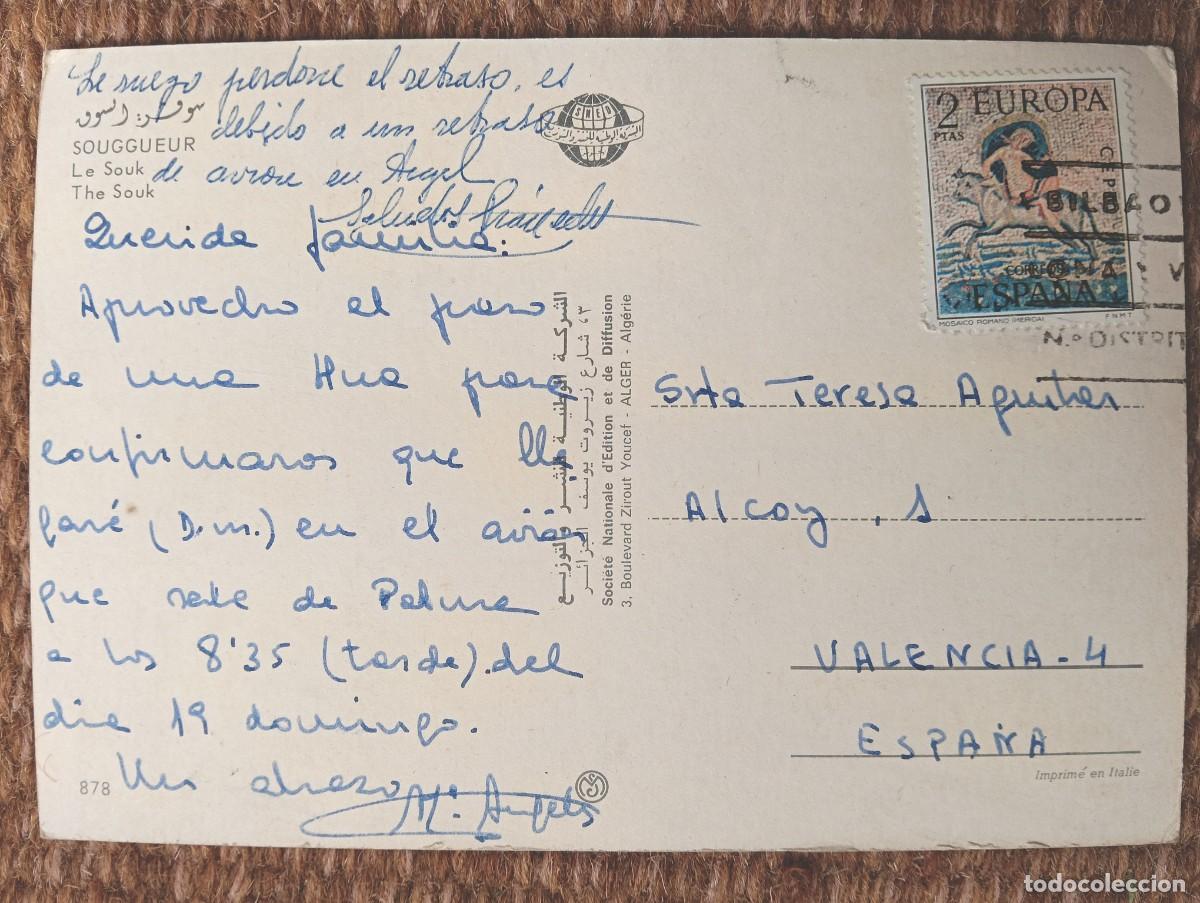 Le ruego perdone el retraso, es
debido a un retraso
de avion en Argel
Saludos
سوقر: السوق
SOUGGUEUR
Le Souk
The Souk
SNED
Querida familia:
Aprovecho el paso
de una Hna para
confirmaros que lle
garé (D.m.) en el avión
que sale de Palma
a las 8'35 (tarde) del
dia 19 domingo.
Un abrazo
Mª Angeles
878
الشركة الوطنية للنشر والتوزيع
٤٣ شارع زيروت يوسف الجزائر
Société Nationale d'Edition et de Diffusion
3, Boulevard Zirout Youcef - ALGER - Algérie
2 EUROPA
PTAS
CEPT
CORREOS
ESPAÑA
MOSAICO ROMANO (MERIDA) FNMT
BILBAO
Nº DISTRIT
Srta Teresa Aguilar
Alcoy, 1
VALENCIA-4
ESPAÑA
Imprimé en Italie
todocoleccion